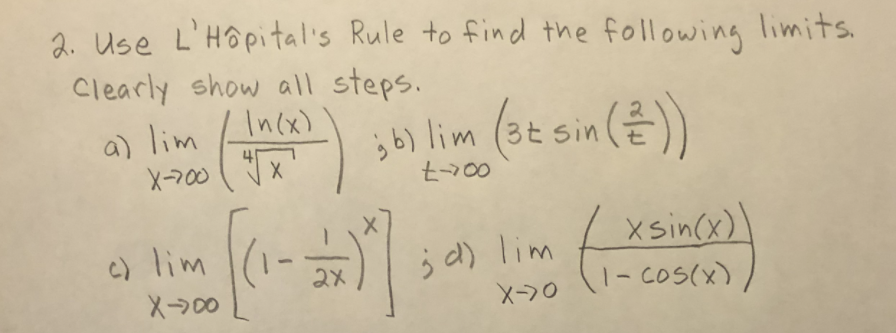 2. Use L'Hôpital's Rule to find the following limits.
Clearly show all steps.
a) lim x→∞ (ln(x) / ∜x) ; b) lim t→∞ (3t sin(2/t))
c) lim x→∞ [(1 - 1/2x)^x] ; d) lim x→0 (x sin(x) / 1 - cos(x))